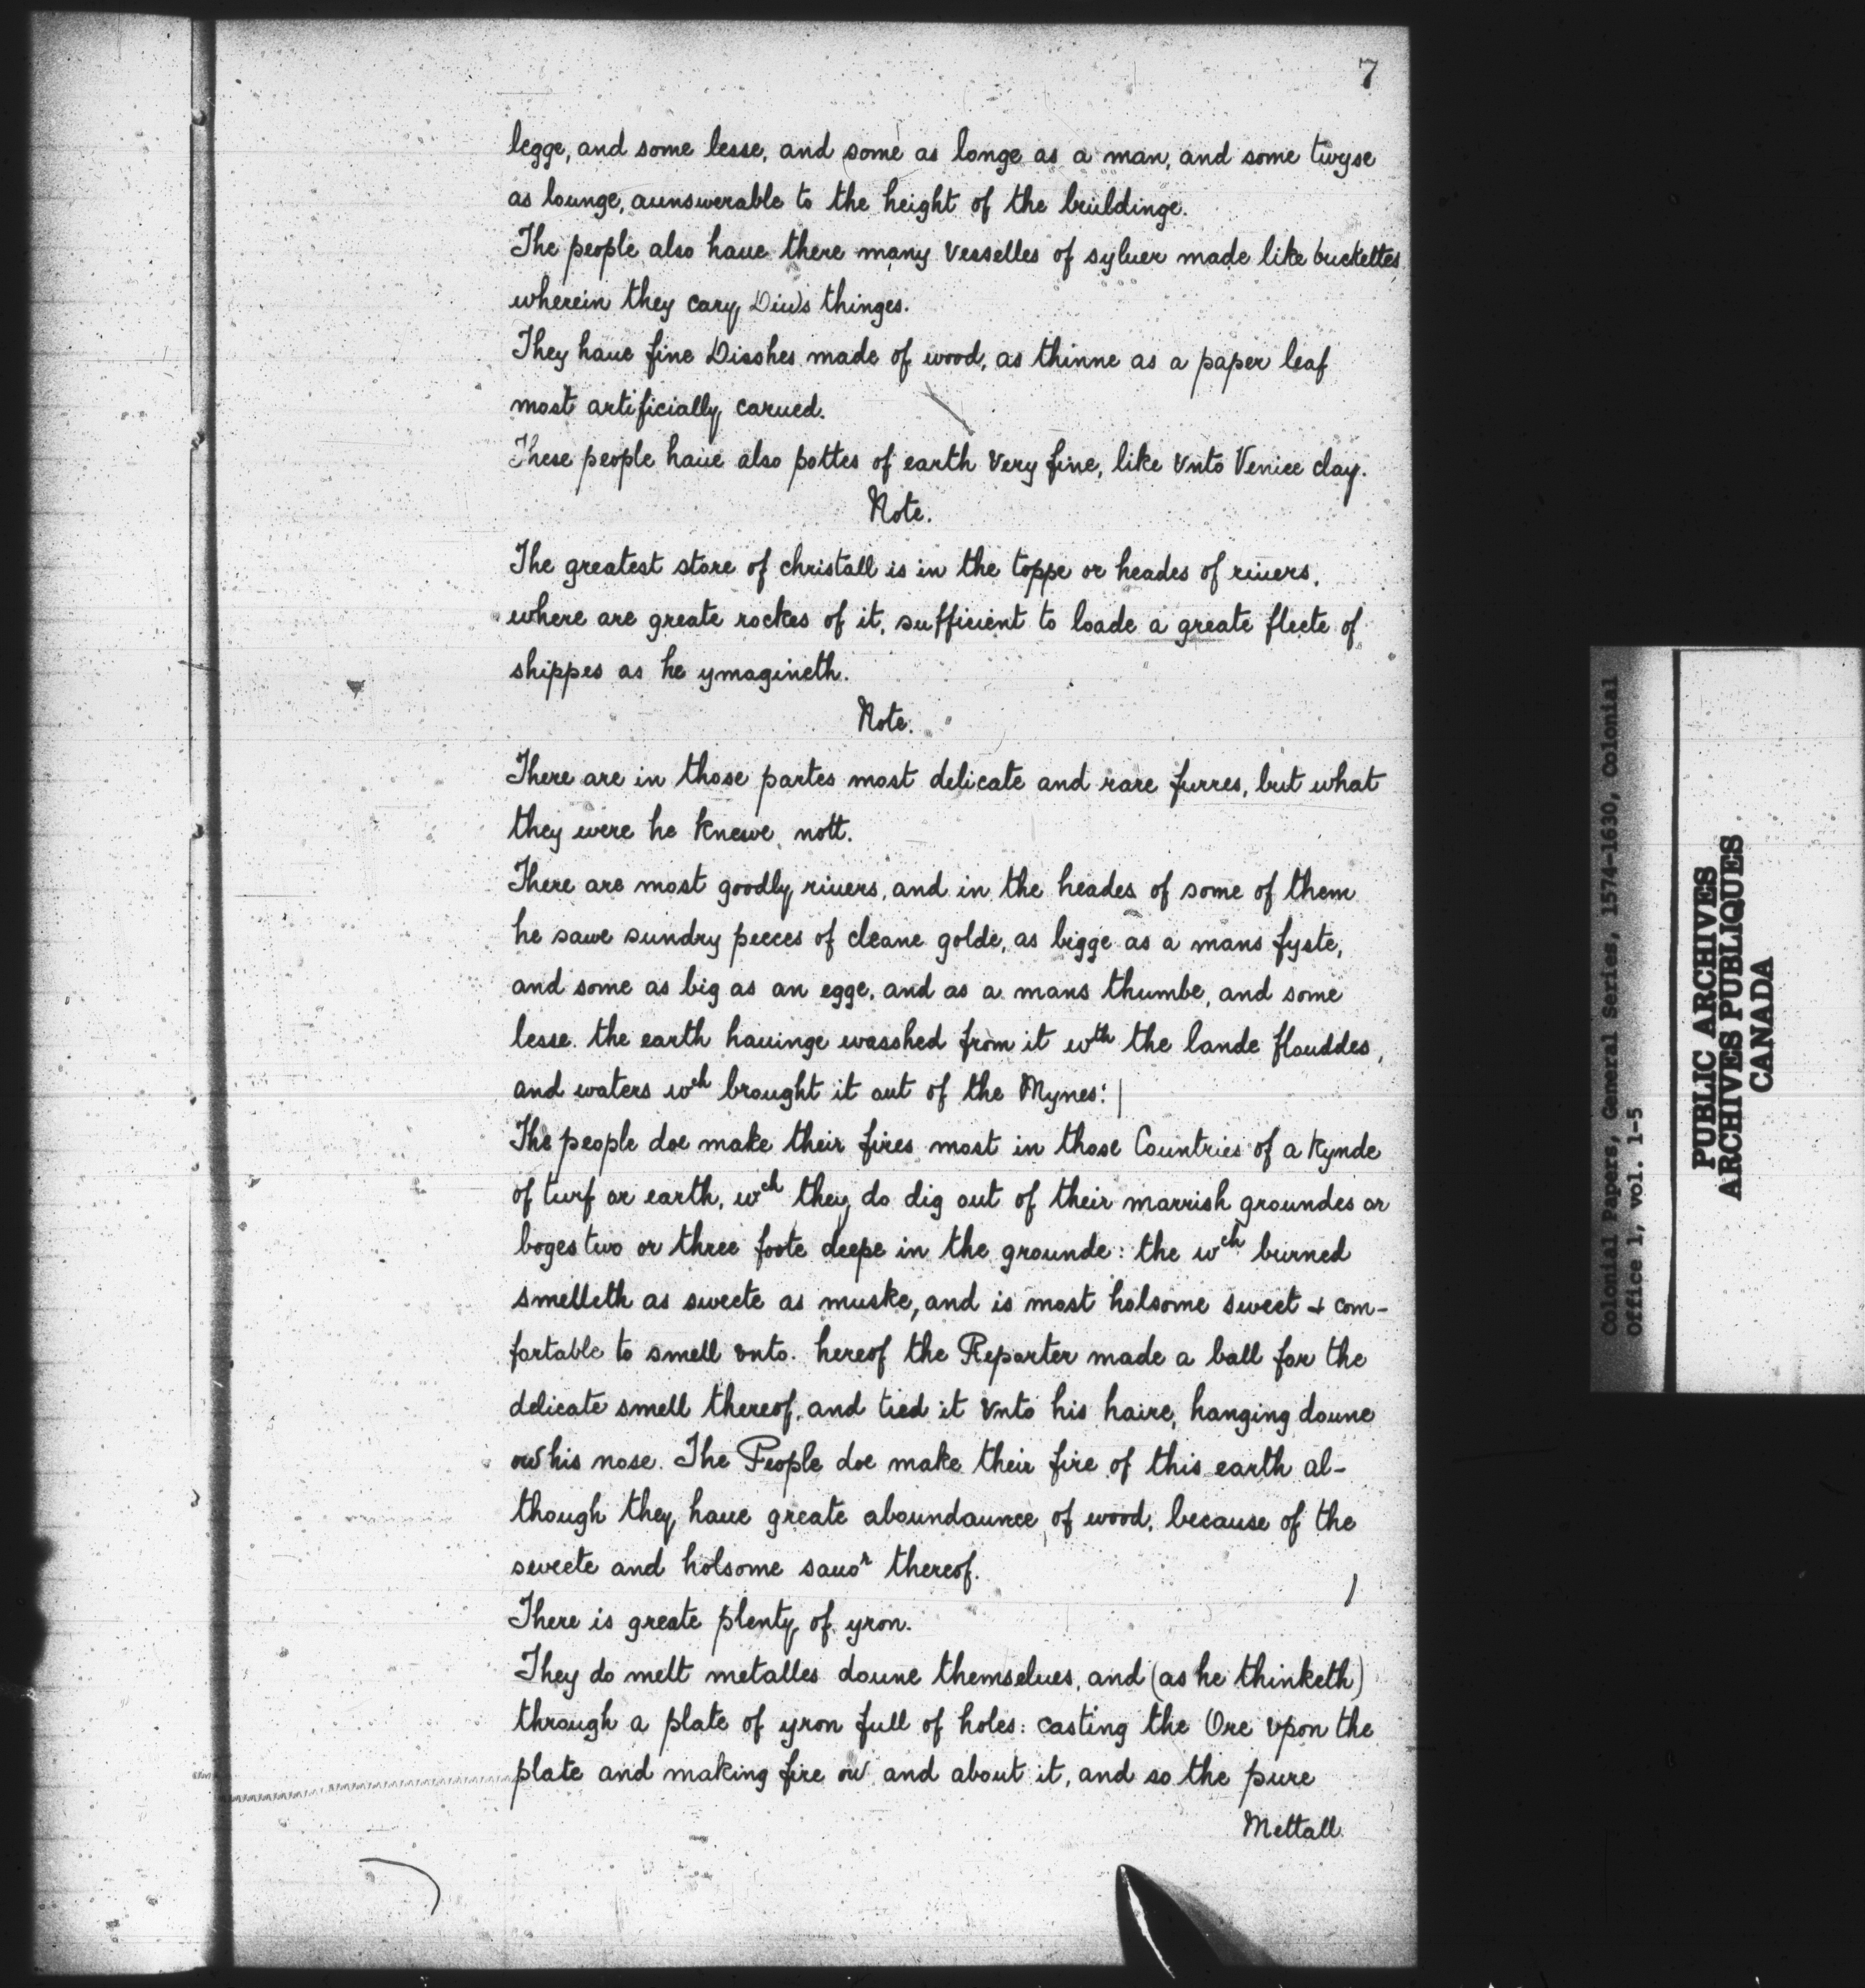 7
legge, and some lesse, and some as longe as a man, and some twyse
as lounge, aunswerable to the height of the buildinge.
The people also haue there many Vesselles of syluer made like buckettes
wherein they cary Diu's thinges.
They haue fine Disshes made of wood, as thinne as a paper leaf
most artificially carued.
These people haue also pottes of earth very fine, like vnto Venice clay.
Note.
The greatest store of christall is in the toppe or heades of riuers,
where are greate rockes of it, sufficient to loade a greate fleete of
shippes as he ymagineth.
Note.
There are in those partes most delicate and rare furres, but what
they were he knewe nott.
There are most goodly riuers, and in the heades of some of them
he sawe sundry peeces of cleane golde, as bigge as a mans fyste,
and some as big as an egge, and as a mans thumbe, and some
lesse. the earth hauinge wasshed from it wth the lande flouddes,
and waters wch brought it out of the Mynes: |
The people doe make their fires most in those Countries of a kynde
of turf or earth, wch they do dig out of their marrish groundes or
boges two or three foote deepe in the grounde: the wch burned
smelleth as sweete as muske, and is most holsome sweet & com-
fortable to smell vnto. hereof the Reporter made a ball for the
delicate smell thereof, and tied it vnto his haire, hanging doune
ou' his nose. The People doe make their fire of this earth al-
though they haue greate aboundaunce of wood, because of the
sweete and holsome sauor thereof.
There is greate plenty of yron.
They do melt metalles doune themselues, and (as he thinketh)
through a plate of yron full of holes: casting the Ore vpon the
plate and making fire ou' and about it, and so the pure
Mettall
Colonial Papers, General Series, 1574-1630, Colonial
Office 1, vol. 1-5
PUBLIC ARCHIVES
ARCHIVES PUBLIQUES
CANADA